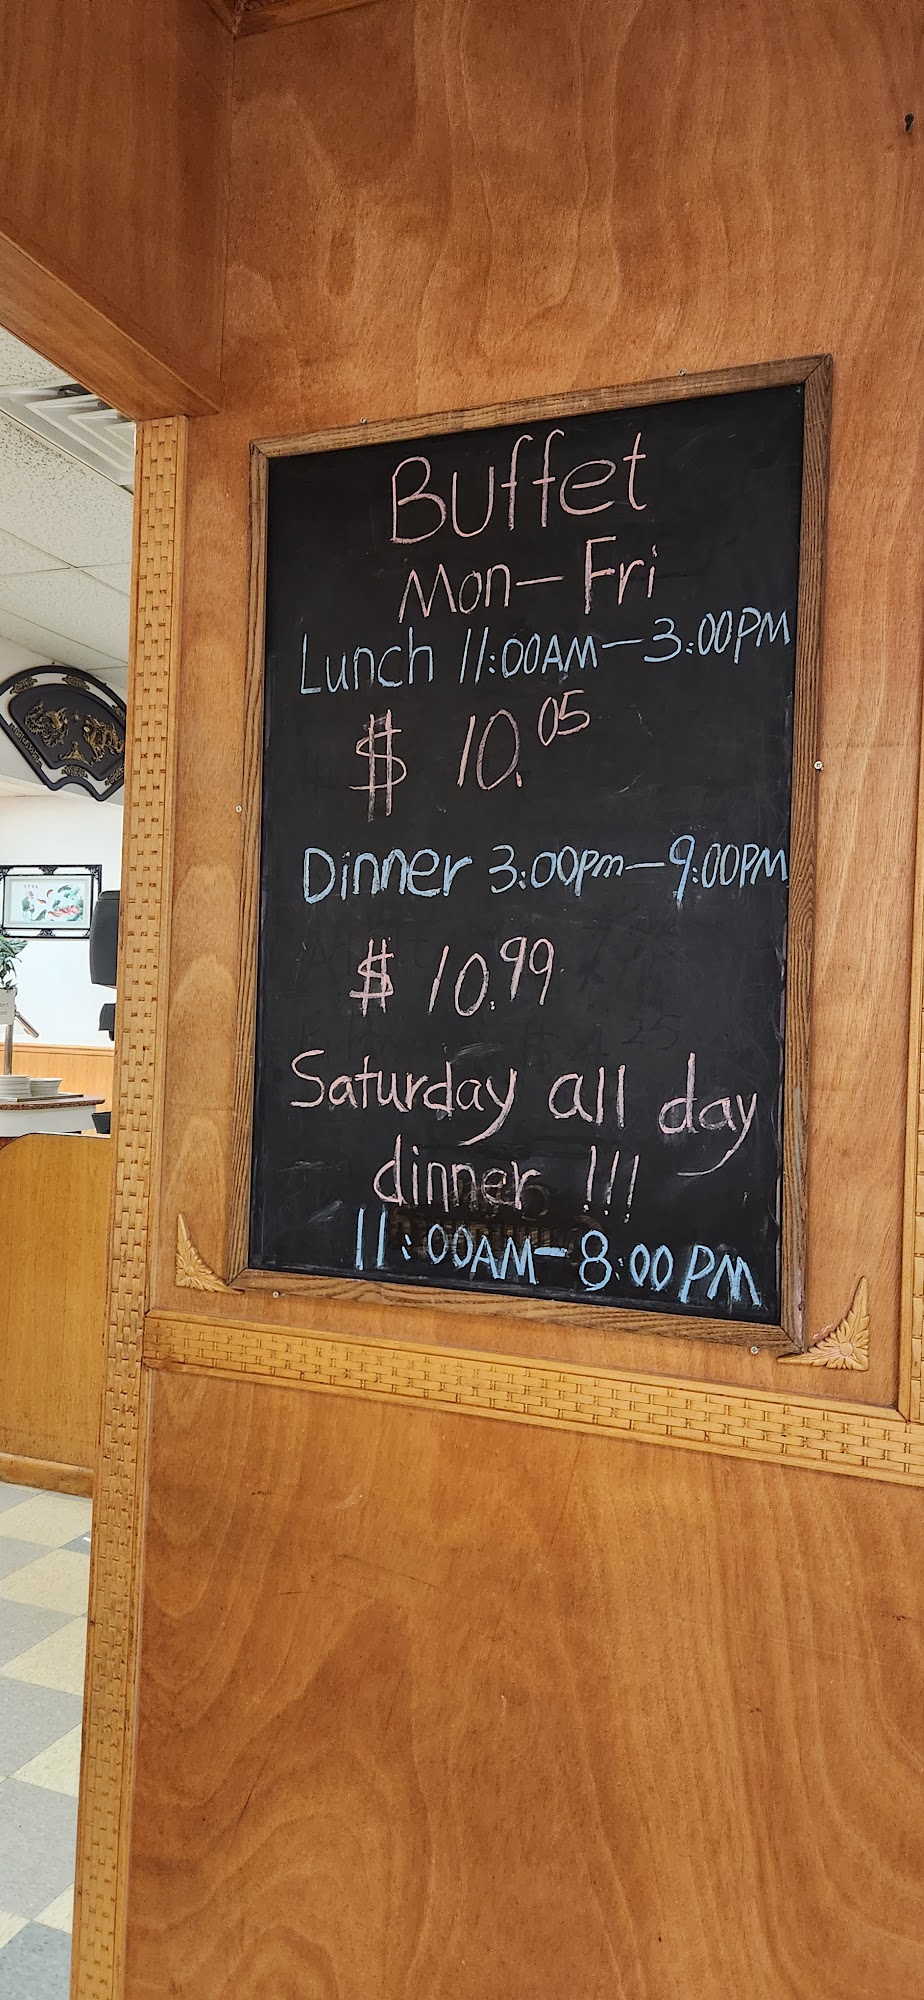 Buffet
Mon-Fri
Lunch 11:00AM-3:00PM
$ 10.05
Dinner 3:00pm-9:00PM
$ 10.99
Saturday all day
dinner !!!
11:00AM-8:00PM